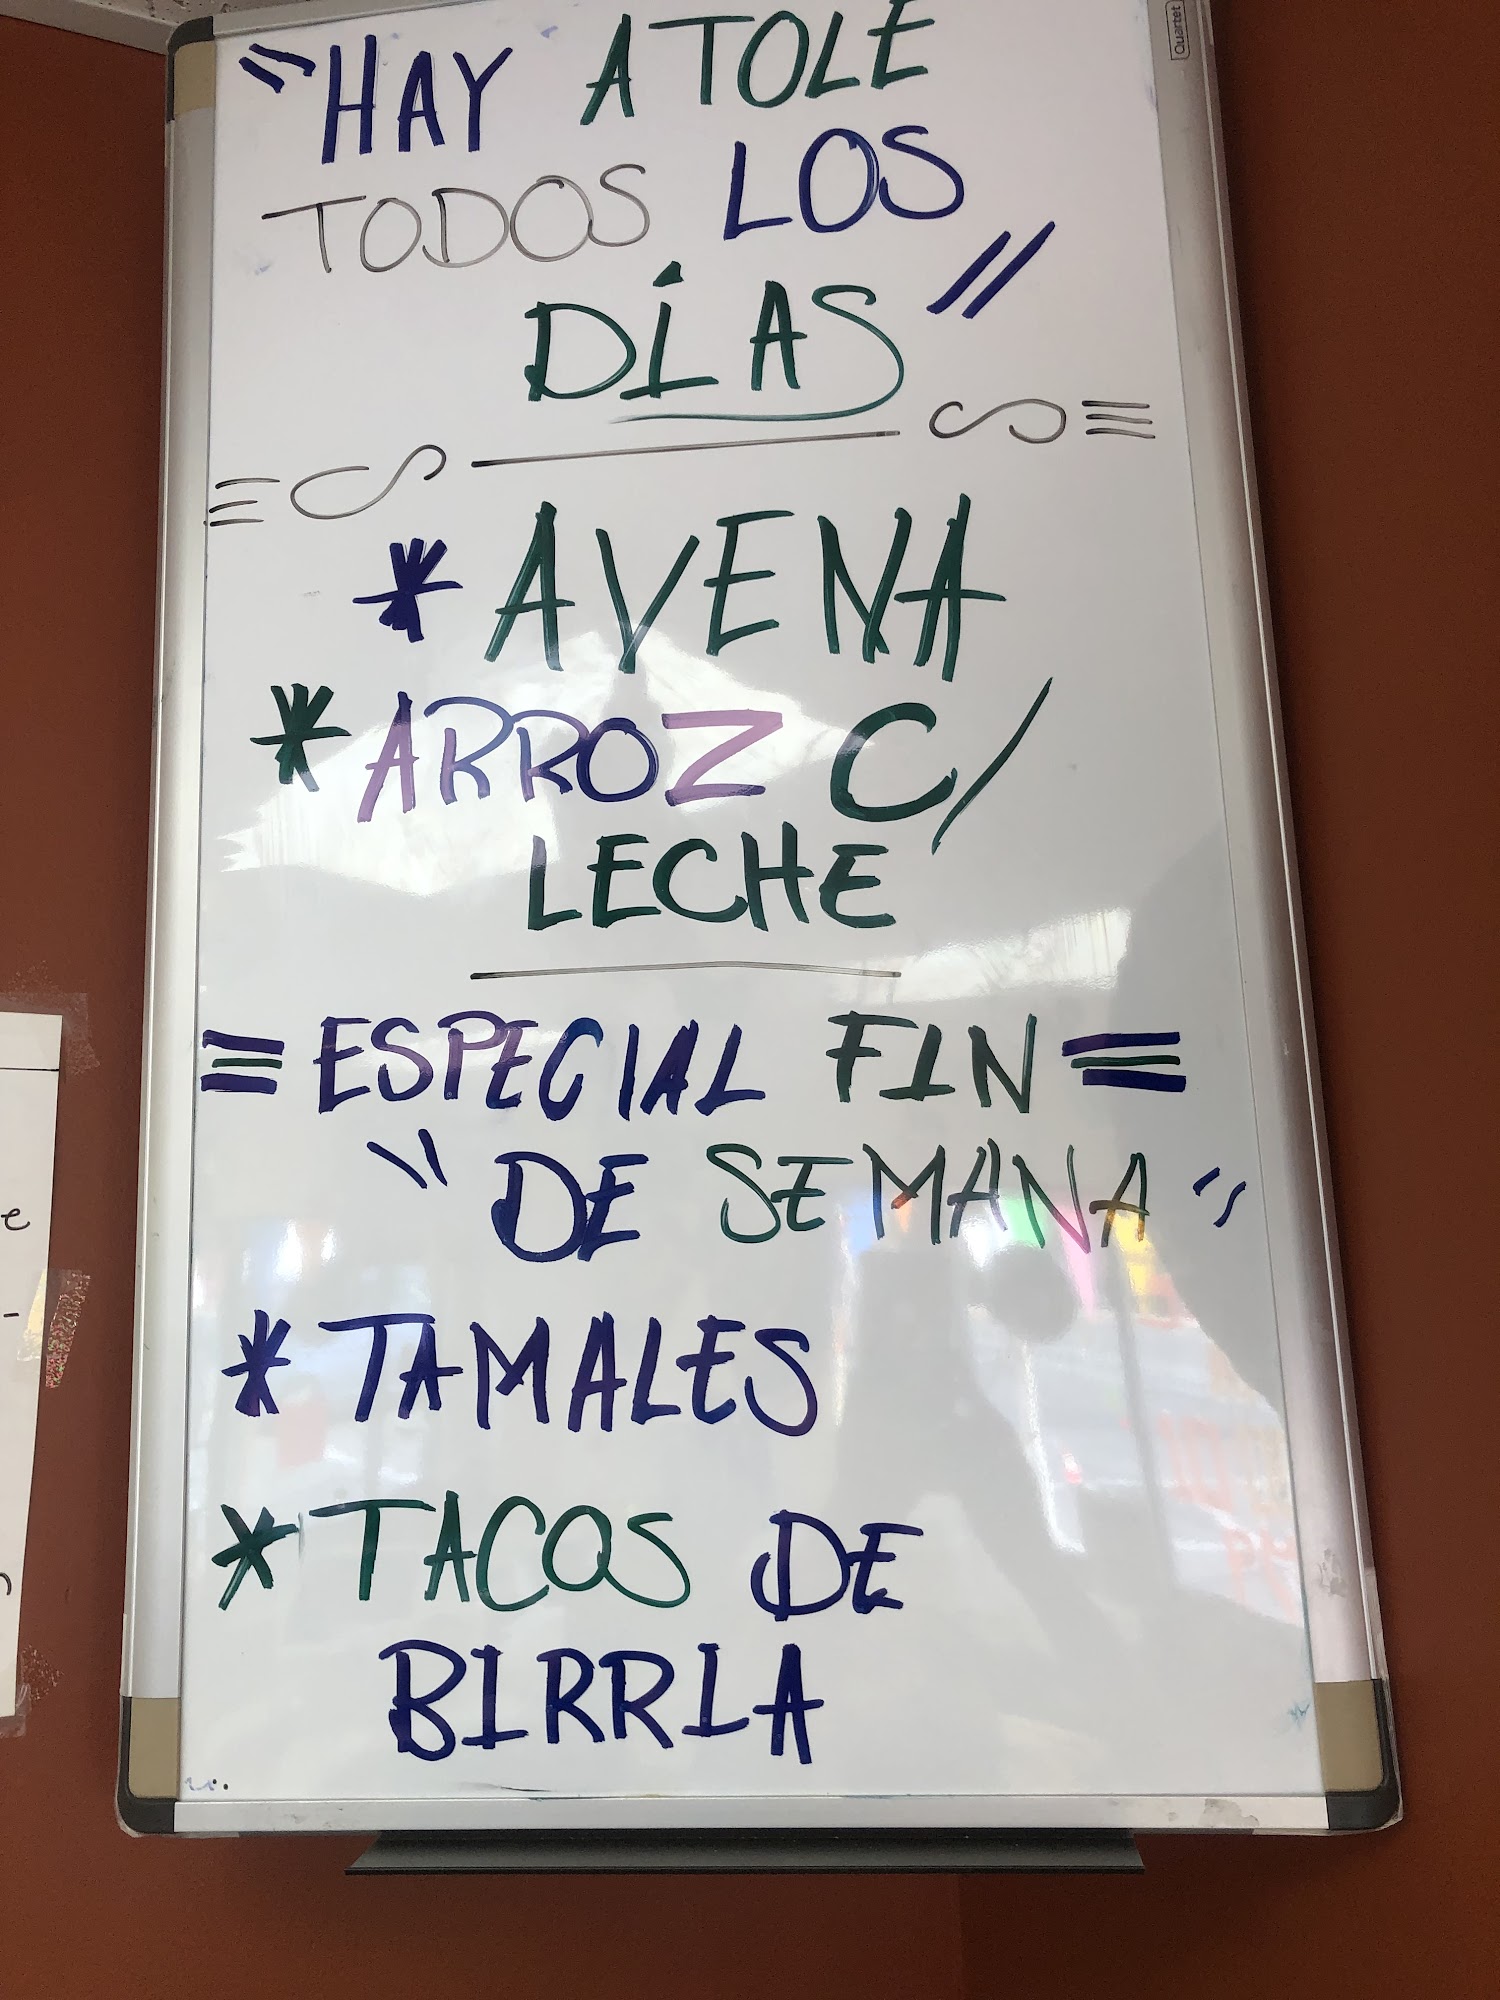 "HAY ATOLE
TODOS LOS
DÍAS"
* AVENA
* ARROZ C/
LECHE
= ESPECIAL FIN =
"DE SEMANA"
* TAMALES
* TACOS DE
BIRRIA
Quartet
e